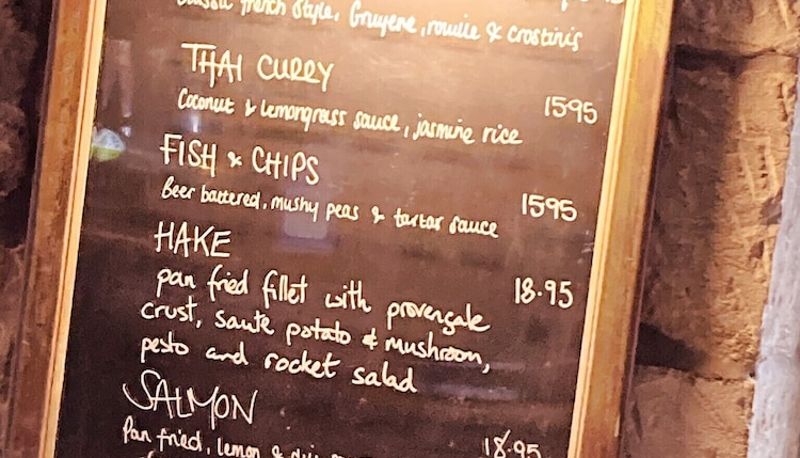 French Style, Gruyere, rouille & crostinis
THAI CURRY
Coconut & Lemongrass sauce, jasmine rice 1595
FISH & CHIPS
Beer battered, mushy peas & tartar sauce 1595
HAKE
pan fried fillet with provençale 18.95
crust, saute potato & mushroom,
pesto and rocket salad
SALMON
Pan fried, lemon & 18.95